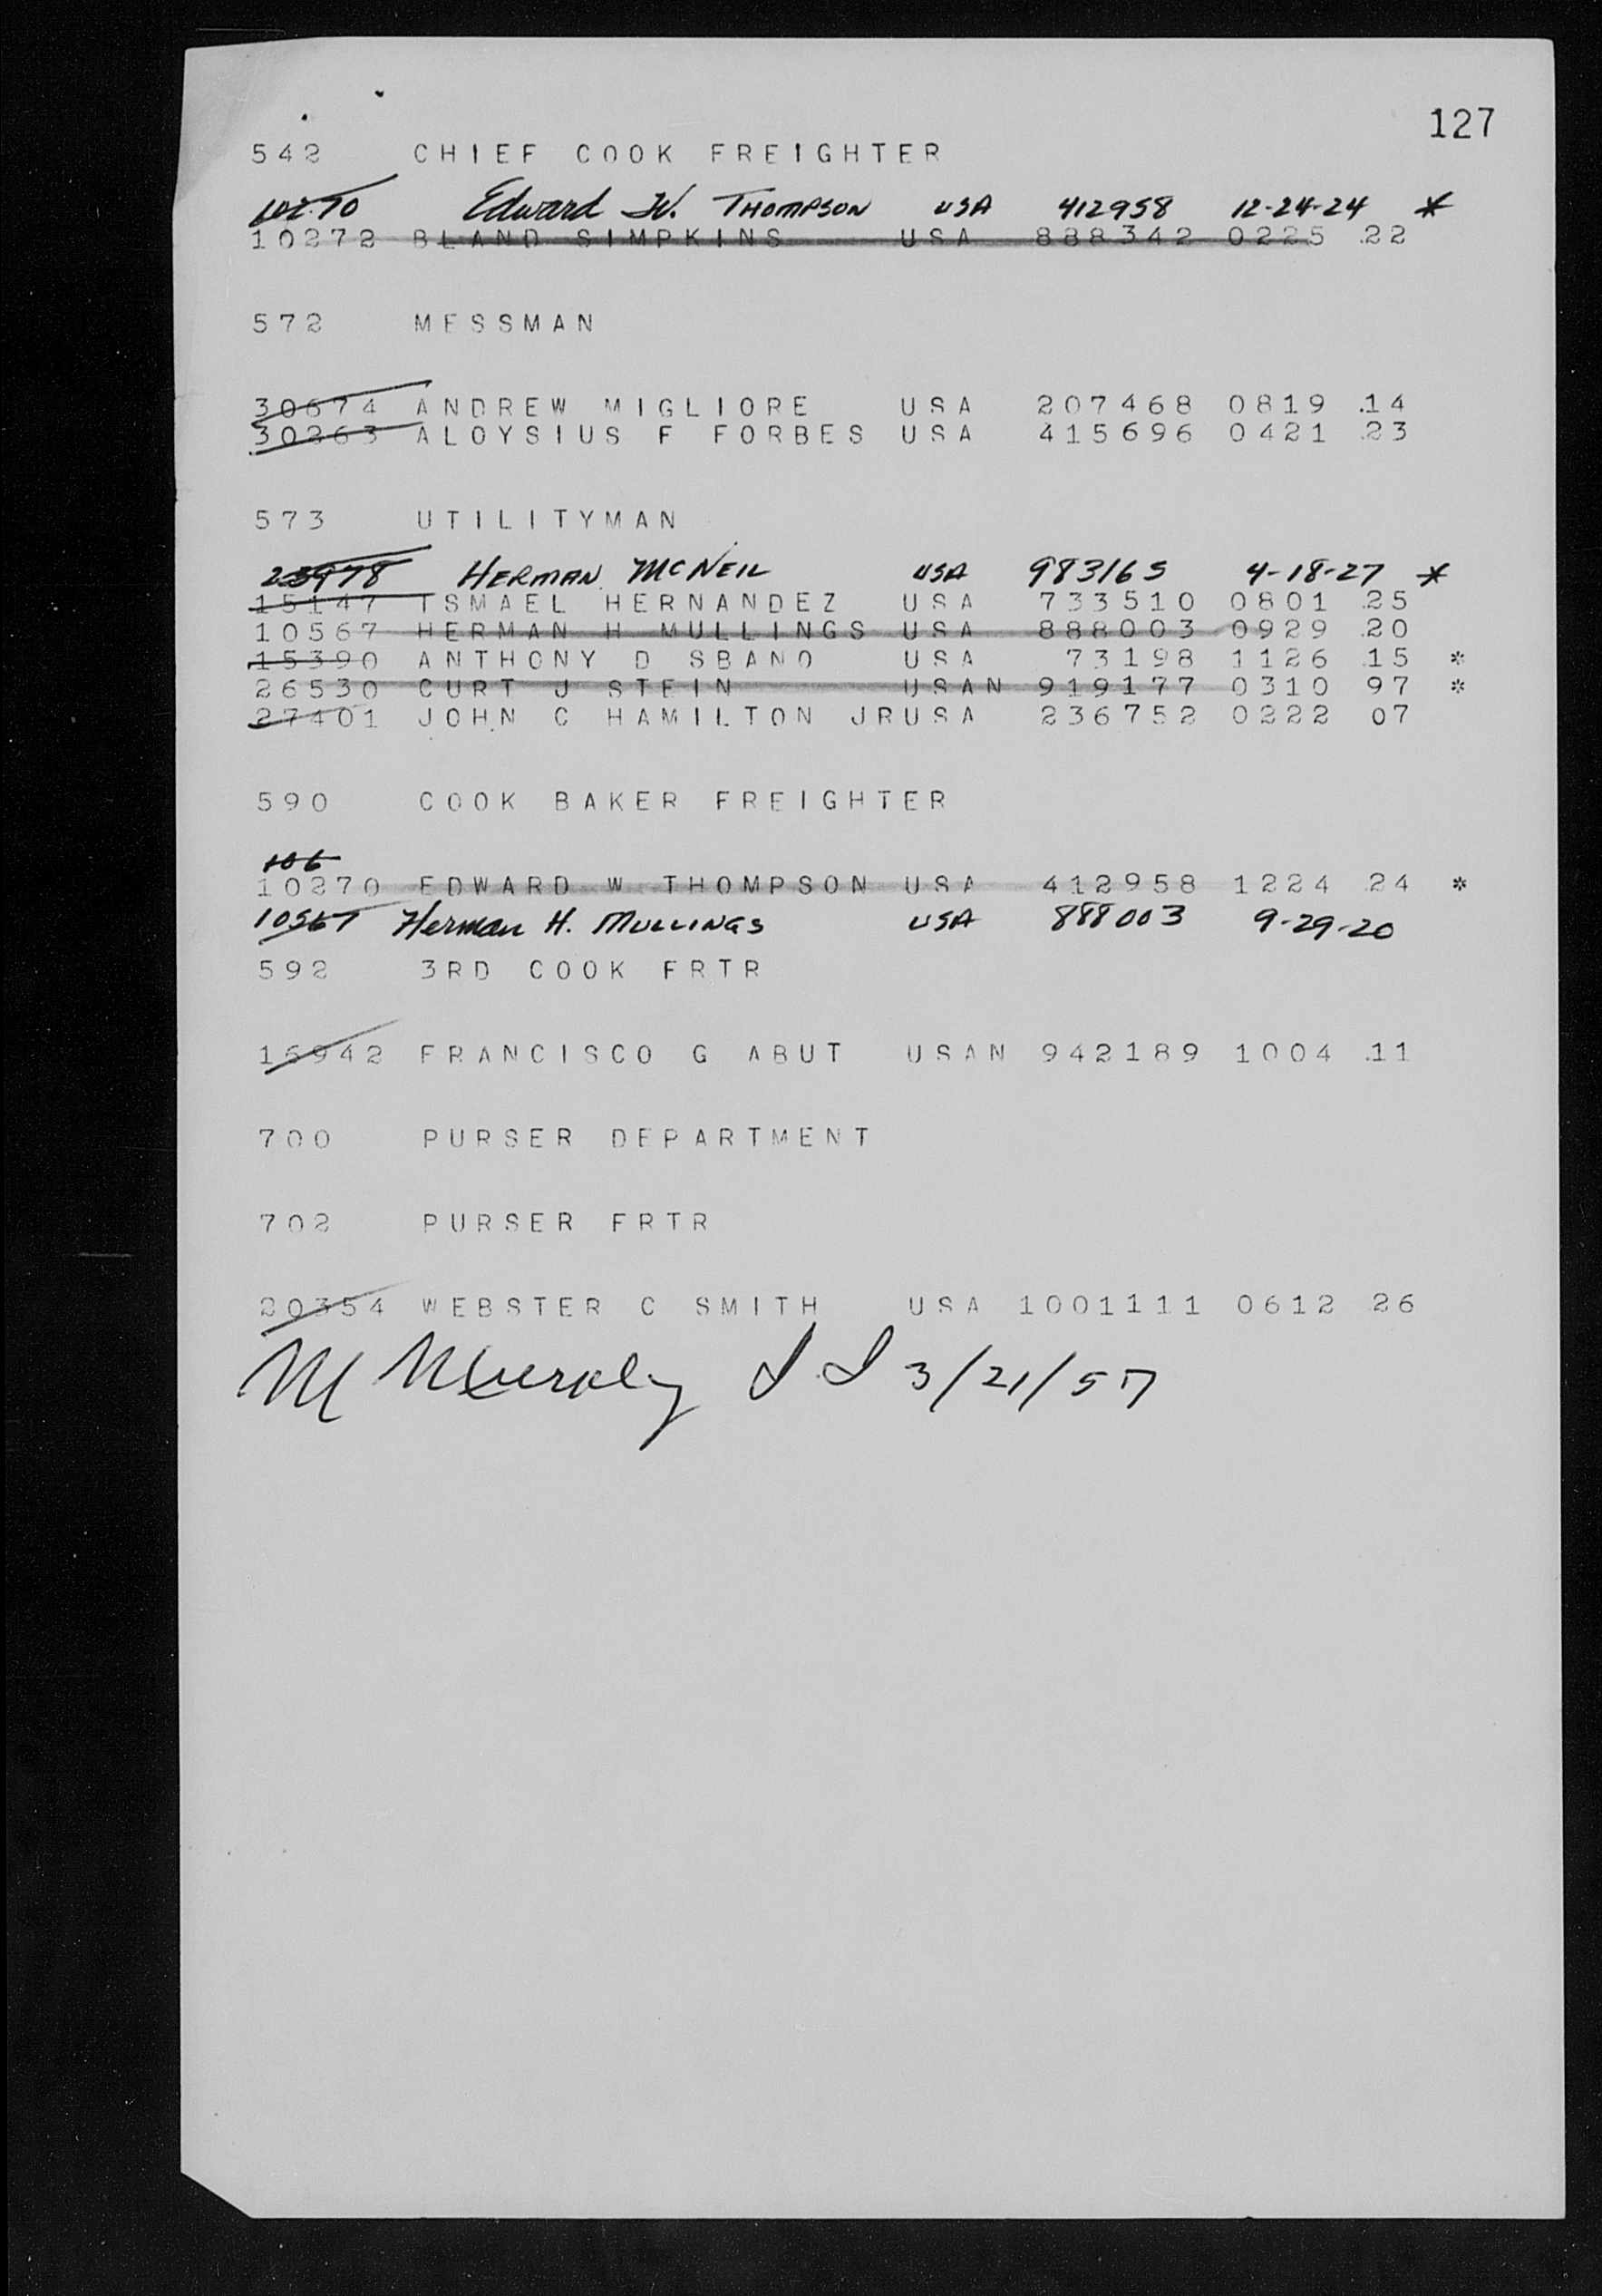 127
542 CHIEF COOK FREIGHTER
10270 Edward W. THOMPSON USA 412958 12-24-24 *
10272 BLAND SIMPKINS USA 888342 0225 22
572 MESSMAN
30674 ANDREW MIGLIORE USA 207468 0819 14
30263 ALOYSIUS F FORBES USA 415696 0421 23
573 UTILITYMAN
23978 HERMAN MCNEIL USA 983165 4-18-27 *
15147 ISMAEL HERNANDEZ USA 733510 0801 25
10567 HERMAN H MULLINGS USA 888003 0929 20
15390 ANTHONY D SBANO USA 73198 1126 15 *
26530 CURT J STEIN USAN 919177 0310 97 *
27401 JOHN C HAMILTON JRUSA 236752 0222 07
590 COOK BAKER FREIGHTER
106
10270 EDWARD W THOMPSON USA 412958 1224 24 *
10567 Herman H. MULLINGS USA 888003 9-29-20
592 3RD COOK FRTR
16942 FRANCISCO G ABUT USAN 942189 1004 11
700 PURSER DEPARTMENT
702 PURSER FRTR
20354 WEBSTER C SMITH USA 1001111 0612 26
M Murphy 3/21/57